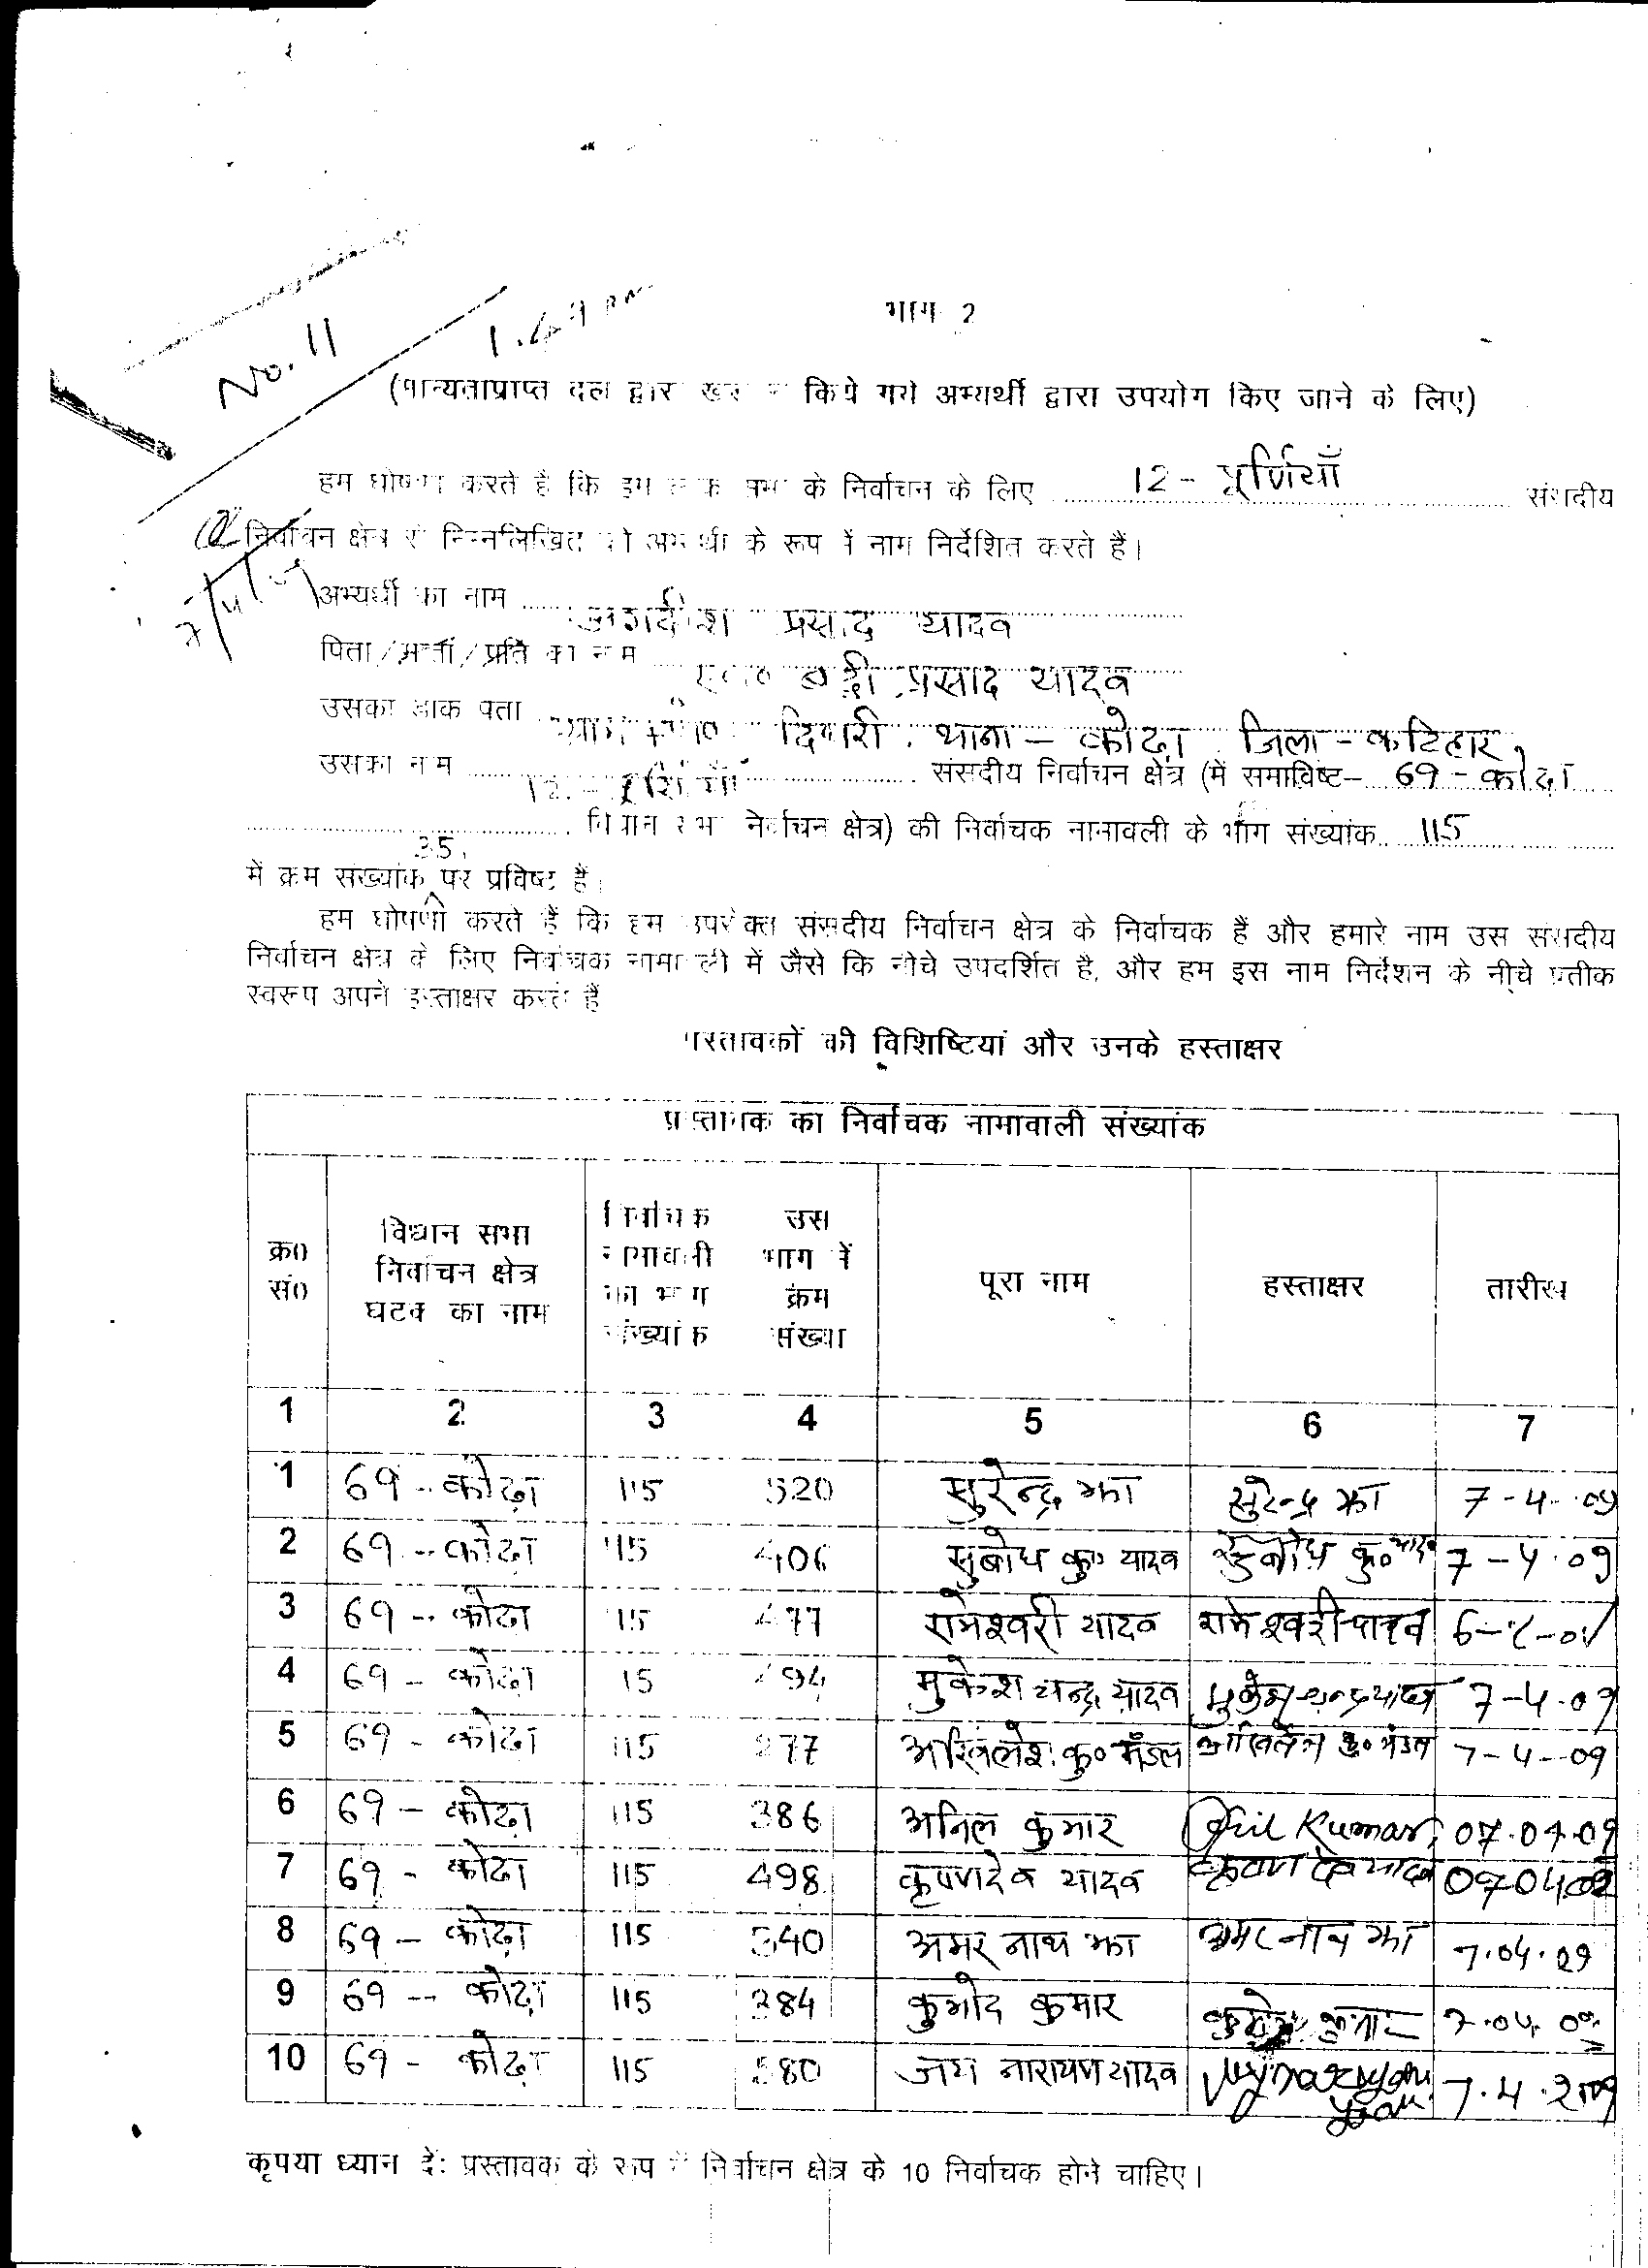 No. 11
1.49 PM
भाग 2
(मान्यताप्राप्त दल द्वारा खड़ा न किये गये अभ्यर्थी द्वारा उपयोग किए जाने के लिए)
हम घोषणा करते हैं कि हम लोक सभा के निर्वाचन के लिए 12 - पूर्णियाँ संसदीय
निर्वाचन क्षेत्र से निम्नलिखित को अभ्यर्थी के रूप में नाम निर्देशित करते हैं।
अभ्यर्थी का नाम जगदीश प्रसाद यादव
पिता/माता/पति का नाम प्रसाद यादव
उसका डाक पता दिघरी, थाना - कोढ़ा, जिला - कटिहार,
उसका नाम 12 - पूर्णियाँ संसदीय निर्वाचन क्षेत्र (में समाविष्ट- 69 - कोढ़ा
विधान सभा निर्वाचन क्षेत्र) की निर्वाचक नामावली के भाग संख्यांक 115
35
में क्रम संख्यांक पर प्रविष्ट हैं।
हम घोषणा करते हैं कि हम उपरोक्त संसदीय निर्वाचन क्षेत्र के निर्वाचक हैं और हमारे नाम उस संसदीय
निर्वाचन क्षेत्र के लिए निर्वाचक नामावली में जैसे कि नीचे उपदर्शित है, और हम इस नाम निर्देशन के नीचे प्रतीक
स्वरूप अपने हस्ताक्षर करते हैं
प्रस्तावकों की विशिष्टियां और उनके हस्ताक्षर
प्रस्तावक का निर्वाचक नामावाली संख्यांक
क्र0 सं0 विधान सभा निर्वाचन क्षेत्र घटक का नाम निर्वाचक नामावली का भाग संख्यांक उस भाग में क्रम संख्या पूरा नाम हस्ताक्षर तारीख
1 2 3 4 5 6 7
1 69 - कोढ़ा 115 520 सुरेन्द्र झा सुरेन्द्र झा 7-4-09
2 69 - कोढ़ा 115 406 सुबोध कु० यादव सुबोध कु० यादव 7-4-09
3 69 - कोढ़ा 115 477 रामेश्वरी यादव रामेश्वरी यादव
4 69 - कोढ़ा 115 494 मुकेश चन्द्र यादव मुकेश चन्द्र यादव 7-4-09
5 69 - कोढ़ा 115 277 अखिलेश कु० मंडल अखिलेश कु० मंडल 7-4-09
6 69 - कोढ़ा 115 386 अनिल कुमार Anil Kumar 07.04.09
7 69 - कोढ़ा 115 498 कृष्णदेव यादव कृष्ण देव यादव
8 69 - कोढ़ा 115 340 अमर नाथ झा अमर नाथ झा 7.04.09
9 69 - कोढ़ा 115 384 कुमोद कुमार कुमोद कुमार 7.04.09
10 69 - कोढ़ा 115 580 जय नारायण यादव 7.4.2009
कृपया ध्यान दें: प्रस्तावक के रूप में निर्वाचन क्षेत्र के 10 निर्वाचक होने चाहिए।